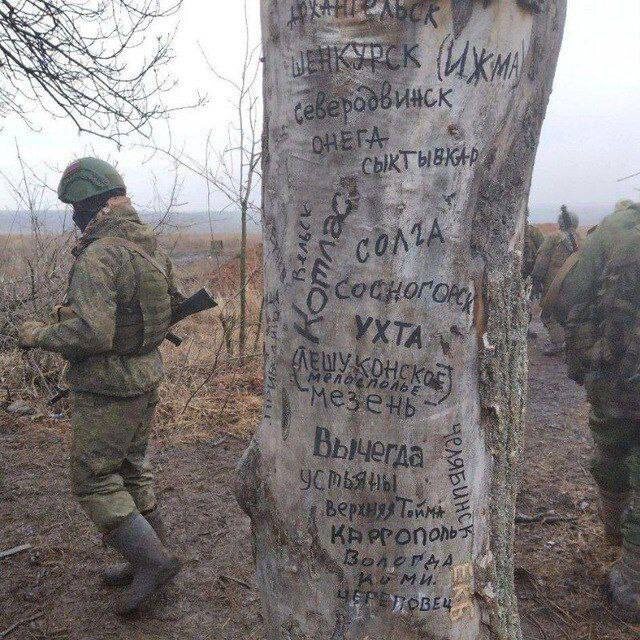 АРХАНГЕЛЬСК
ШЕНКУРСК (ИЖМА)
СЕВЕРОДВИНСК
ОНЕГА
СЫКТЫВКАР
ВЕЛЬСК
Котлас
СОЛГА
СОСНОГОРСК
УХТА
(ЛЕШУКОНСКОЕ)
МЕЗЕНЬ
ВЫЧЕГДА
УСТЬЯНЫ
ЧЕЛЯБИНСК
ВЕРХНЯЯ ТОЙМА
КАРГОПОЛЬ
ВОЛОГДА
КОМИ.
ЧЕРЕПОВЕЦ
ЕКБ